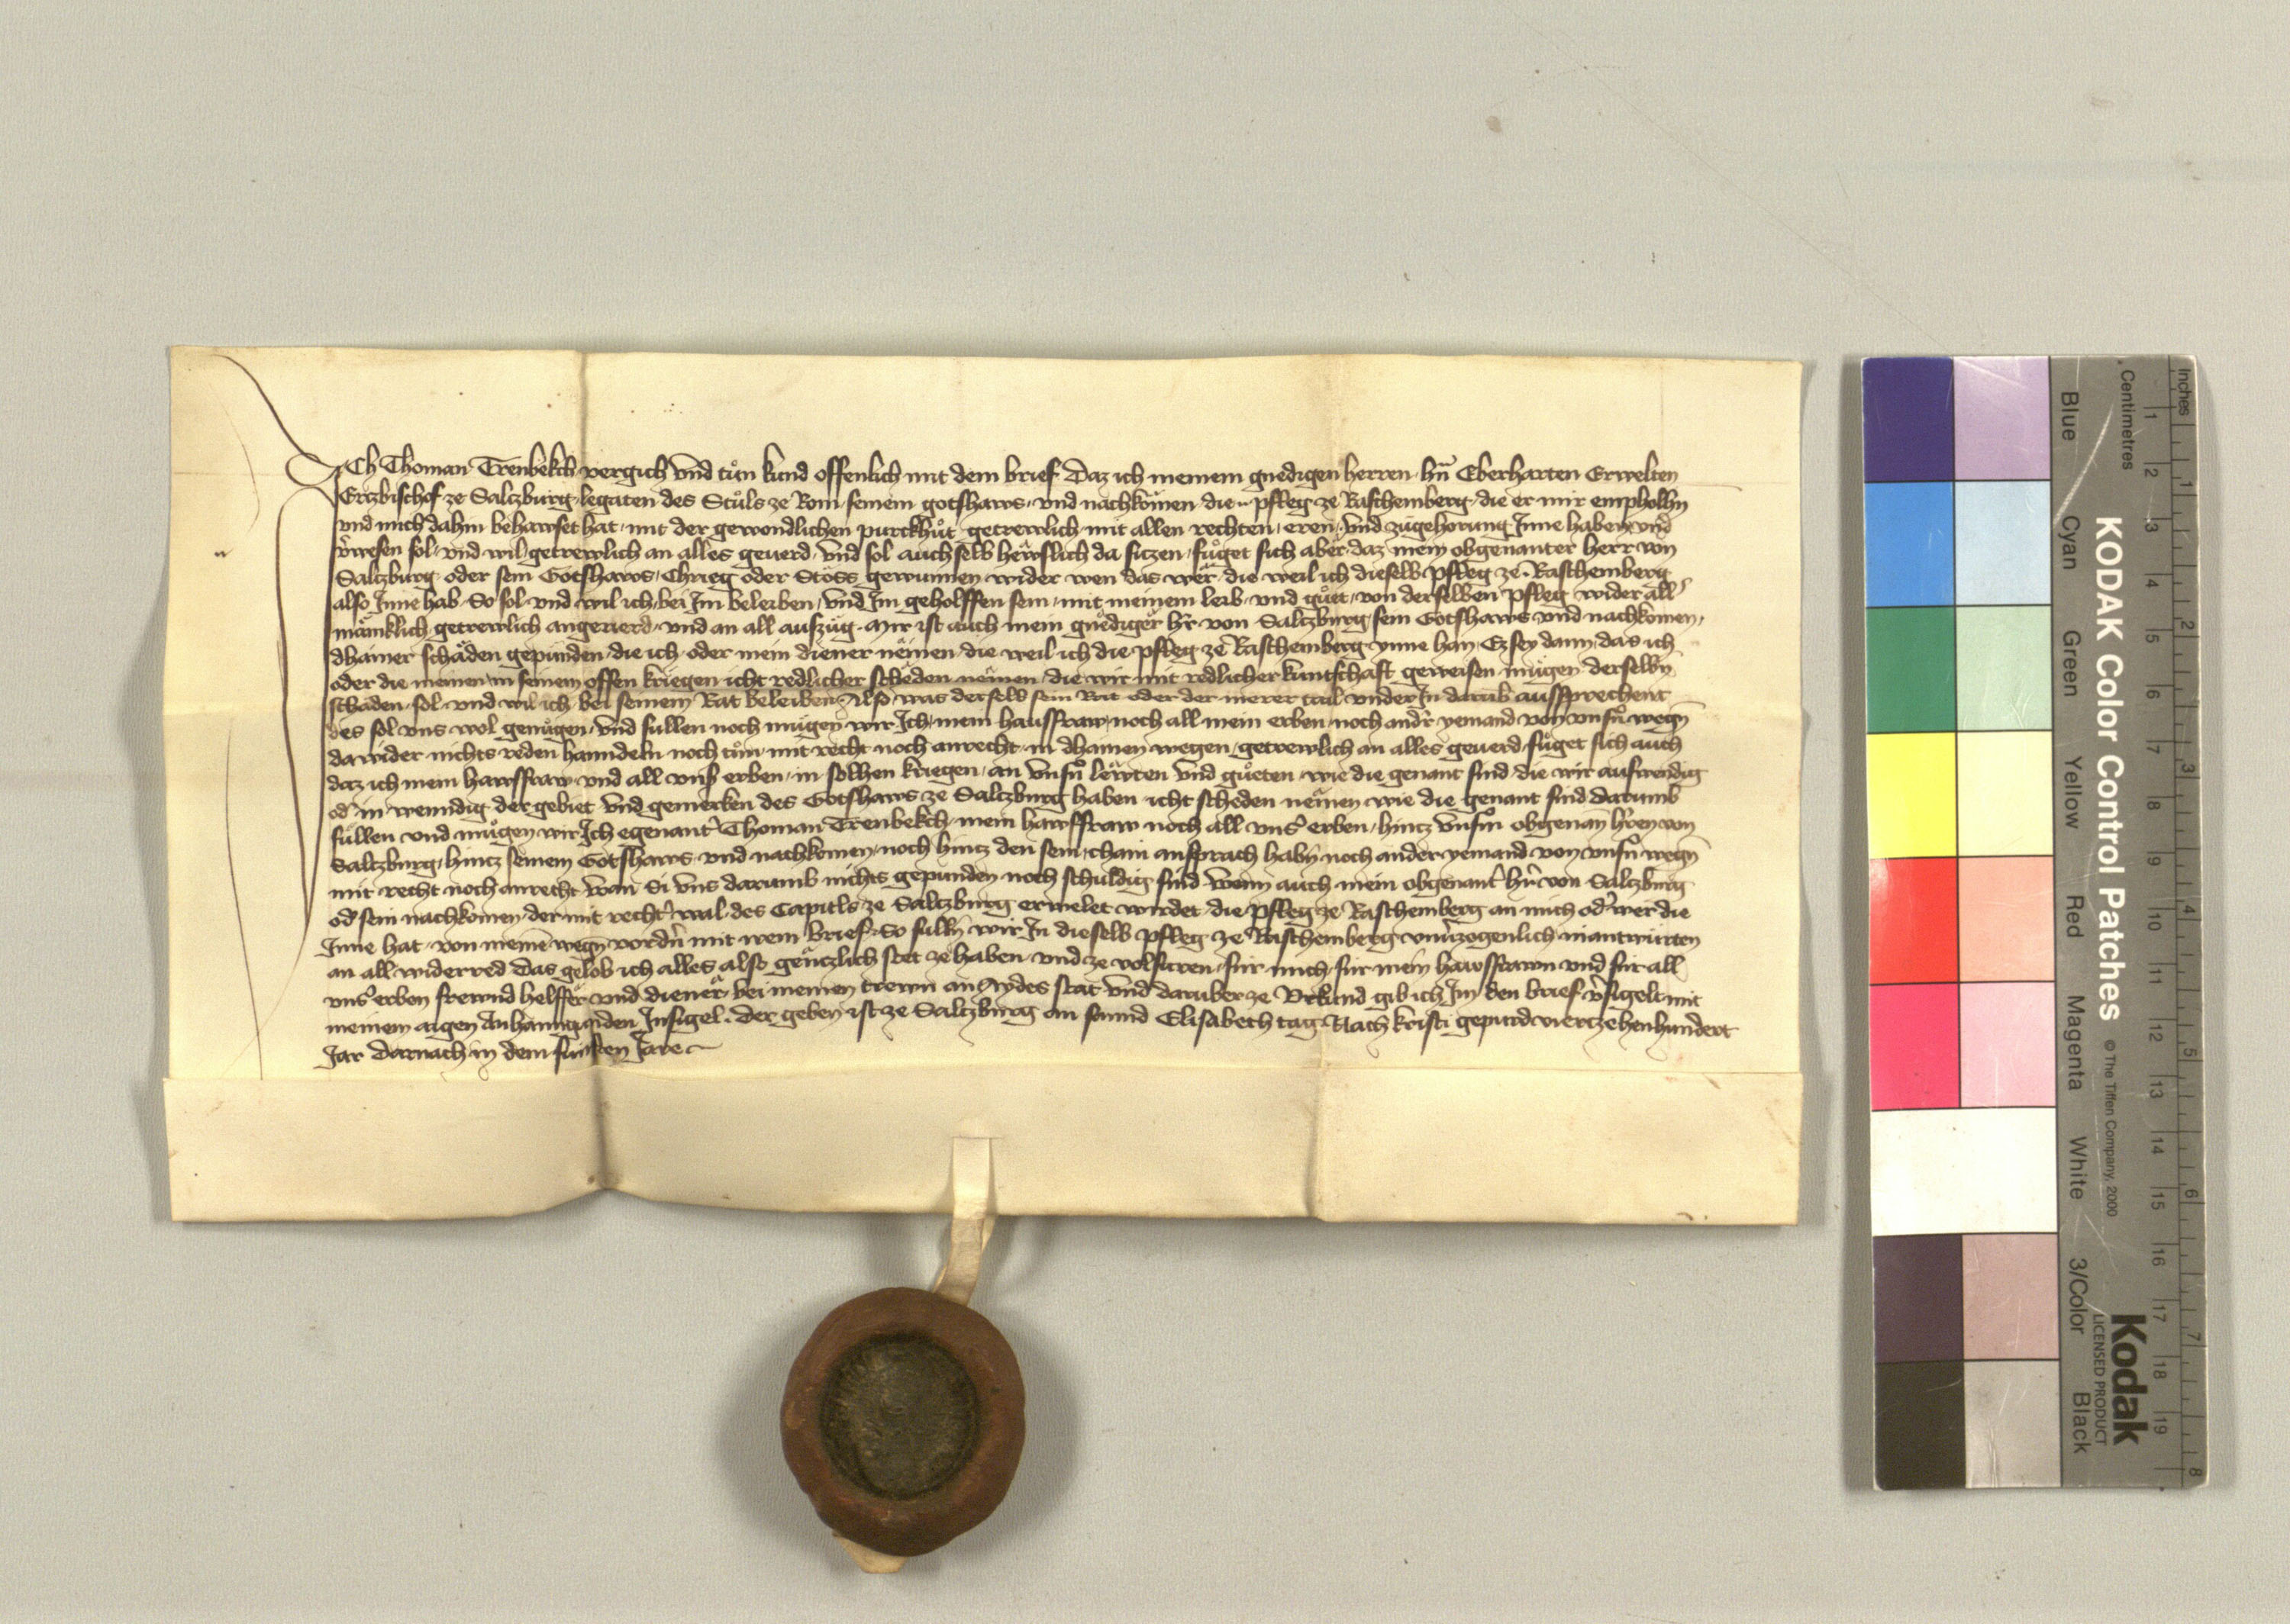 ICh Thoman Trenbekch vergich vnd tůn kund offenlich mit dem brief Daz ich meinem gnedigen herren hñ Eberharten Erwelten
Ertzbischof ze Saltzburg legaten des Stůls ze Rom seinem gotshaws vnd nachkömen die pfleg ze Raschemberg die er mir empholhn
vnd mich dahin behawset hat mit der gewondlichen purckhůt getrewlich mit allen rechten eren vnd zugehorung Inne haben vnd
v̉wesen sol vnd wil getrewlich an alles geuerd vnd sol auch selb hewslich da sitzen fůget sich aber daz mein obgenanter herr von
Saltzburg oder sein Gotshaws Chrieg oder Stöss gewunnen wider wen das wer die weil ich dieselb pfleg ze Raschemberg
also Inne hab So sol vnd wil ich bei Im beleiben vnd Im geholffen sein mit meinem leib vnd gůet von derselben pfleg wider all
mänklich getrewlich angeuerd vnd an all aufzüg Mir ist auch mein gnediger h̉r von Saltzburg sein Gotshaws vnd nachkomen
dhainer schäden gepunden die ich oder mein diener nëmen die weil ich die pfleg ze Raschemberg ynne han Ez sey dann das ich
oder die meinen in seinem offen kriegen icht redlicher scheden nämen die wir mit redlicher kuntschaft geweisen mügen derselbn
schäden sol vnd wil ich bei seinem Rat beleiben Also was derselb sein Rat oder der merer tail vnder In darüb aussprechent
des sol vns wol genügen vnd sullen noch mügen wir Ich mein hausfraw noch all mein erben noch and̉r yemand von vnsn̉ wegn
dawider nichts reden hanndeln noch tůn mit recht noch anrecht in dhainen wegen getrewlich an alles geuerd fůget sich auch
daz ich mein hawsfraw vnd all vns̉ erben in solhen kriegen an vnsn̉ lewten vnd gůeten wie die genant sind die wir auswendig
od̉ in wenndig der gebiet vnd gemerken des Gotshaws ze Saltzburg haben icht scheden nëmen wie die genant sind darumb
süllen vnd mügen wir Ich egenant̉ Thoman Trenbekch mein hawsfraw noch all vns̉ erben hintz vnsm̉ obgenan̄ h̉ren von
Saltzburg hintz seinem Gotshaws vnd nachkomen noch hintz den sein chain ansprach habn̄ noch ander yemand von vnsn̉ wegn̄
mit recht noch anrecht wan Si vns darumb nichts gepunden noch schuldig sind Wenn auch mein obgenant̉ hr̉ von Saltzburg
od̉ sein nachkömen der mit recht̉ wal des Capitls ze Saltzburg erwelet wirdet die pfleg ze Raschemberg an mich od̉ wer die
Inne hat von meinē wegn vordn̉t mit irem brief So sulln̄ wir In dieselb pfleg ze Raschemberg vnủzogenlich inantwurten
an all widerred Das gelob ich alles also gentzlich stet ze haben vnd ze volfuren für mich für mein hawsfrawn vnd für all
vns̉ erben frewnd helffer vnd diener bei meinen trewn an Aydes stat vnd daruber ze Vrkund gib ich Im den brief v̉sigelt mit
meinem aigen Anhanngunden Insigel der geben ist ze Saltzburg an sannd Elisabeth tag Nach kristi gepurd viertzehenhundert
Jar Darnach in dem fünften Jare
KODAK Color Control Patches
© The Tiffen Company, 2000
Kodak
LICENSED PRODUCT
Inches
Centimetres
Blue
Cyan
Green
Yellow
Red
Magenta
White
3/Color
Black
1 2 3 4 5 6 7 8 9 10 11 12 13 14 15 16 17 18 19
1 2 3 4 5 6 7 8